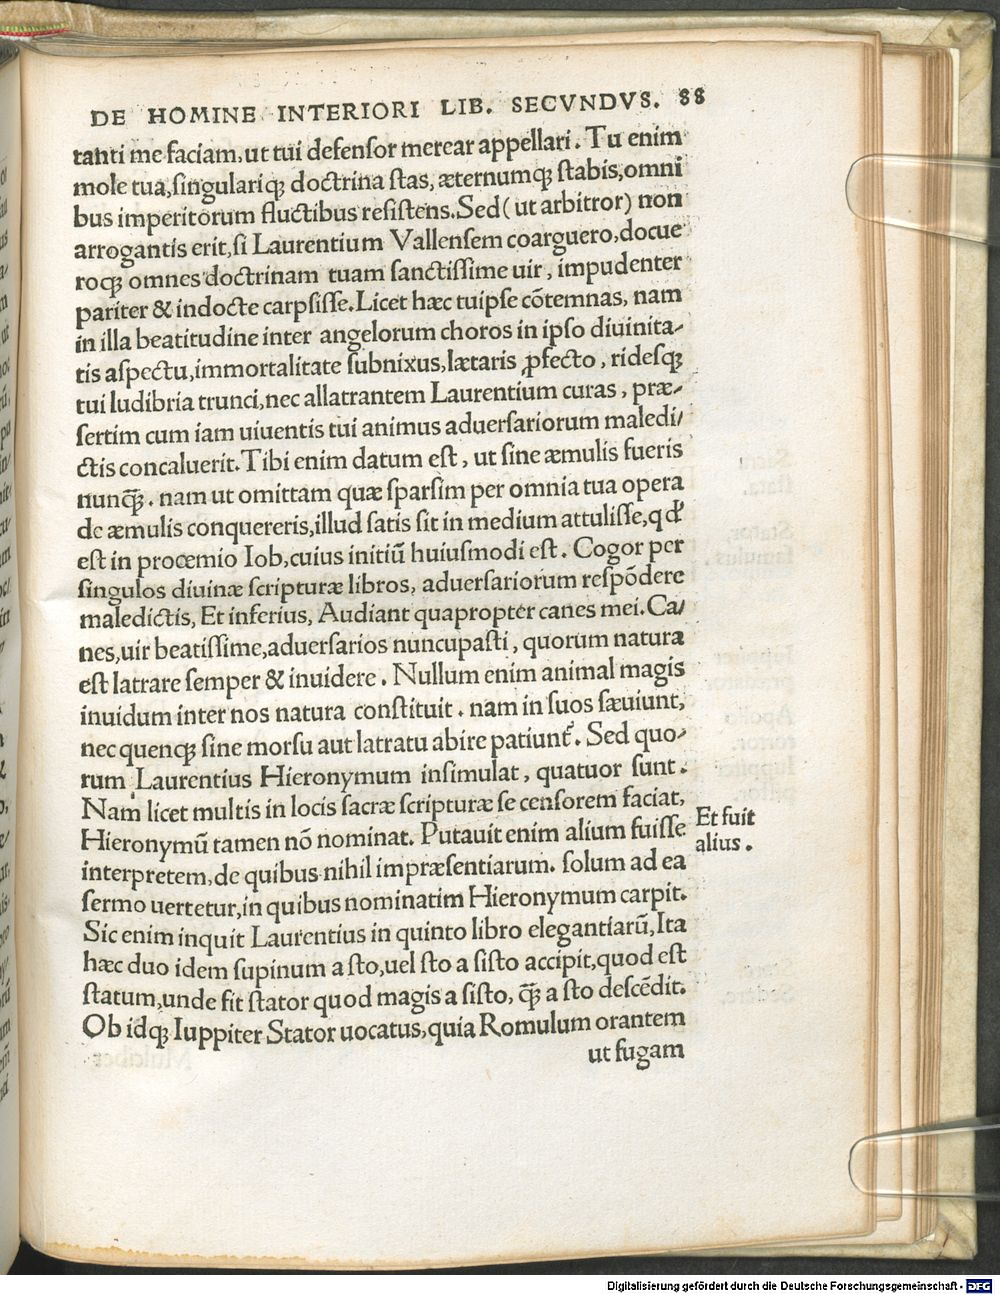 DE HOMINE INTERIORI LIB. SECVNDVS. 88
tanti me faciam, ut tui defensor merear appellari. Tu enim
mole tua, singulariqꝫ doctrina stas, æternumqꝫ stabis, omni
bus imperitorum fluctibus resistens. Sed (ut arbitror) non
arrogantis erit, si Laurentium Vallensem coarguero, docue
roqꝫ omnes doctrinam tuam sanctissime uir, impudenter
pariter & indocte carpsisse. Licet hæc tuipse cõtemnas, nam
in illa beatitudine inter angelorum choros in ipso diuinita-
tis aspectu, immortalitate subnixus, lætaris ꝓfecto, ridesqꝫ
tui ludibria trunci, nec allatrantem Laurentium curas, præ-
sertim cum iam uiuentis tui animus aduersariorum maledi/
ctis concaluerit. Tibi enim datum est, ut sine æmulis fueris
nunq̃ꝫ. nam ut omittam quæ sparsim per omnia tua opera
de æmulis conquereris, illud satis sit in medium attulisse, qd'
est in procemio Iob, cuius initiũ huiusmodi est. Cogor per
singulos diuinæ scripturæ libros, aduersariorum respõdere
maledictis, Et inferius, Audiant quapropter canes mei. Ca/
nes, uir beatissime, aduersarios nuncupasti, quorum natura
est latrare semper & inuidere. Nullum enim animal magis
inuidum inter nos natura constituit. nam in suos sæuiunt,
nec quenqꝫ sine morsu aut latratu abire patiunt᷑. Sed quo-
rum Laurentius Hieronymum insimulat, quatuor sunt.
Nam licet multis in locis sacræ scripturæ se censorem faciat,
Hieronymũ tamen nõ nominat. Putauit enim alium fuisse
interpretem, de quibus nihil impræsentiarum. solum ad ea
sermo uertetur, in quibus nominatim Hieronymum carpit.
Sic enim inquit Laurentius in quinto libro elegantiarũ, Ita
hæc duo idem supinum a sto, uel sto a sisto accipit, quod est
statum, unde fit stator quod magis a sisto, q̃ꝫ a sto descẽdit.
Ob idqꝫ Iuppiter Stator uocatus, quia Romulum orantem
ut fugam
Et fuit
alius.
Digitalisierung gefördert durch die Deutsche Forschungsgemeinschaft - DFG